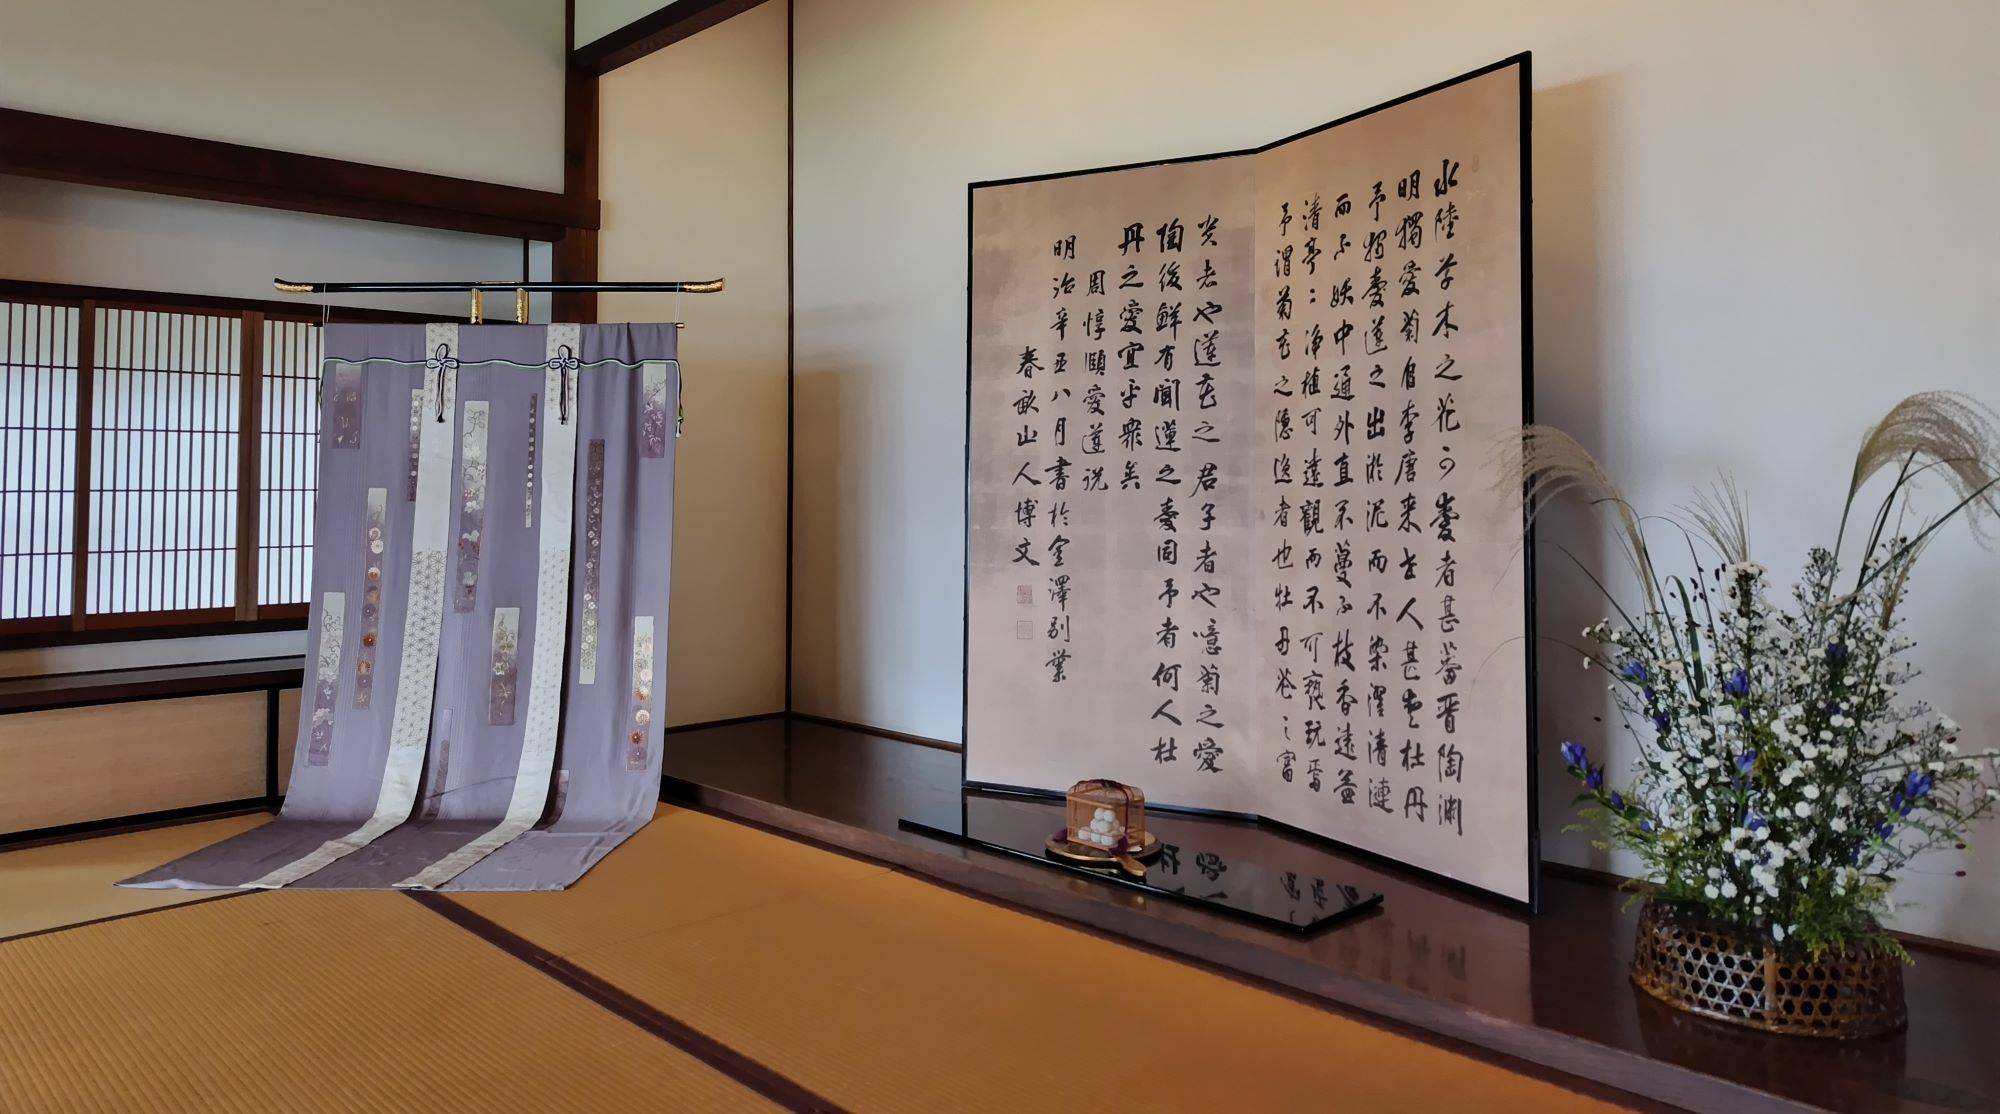 水陸草木之花可愛者甚蕃晋陶淵
明獨愛菊自李唐来世人甚愛牡丹
予獨愛蓮之出淤泥而不染濯清漣
而不妖中通外直不蔓不枝香遠益
清亭〻浄植可遠觀而不可褻玩焉
予謂菊花之隠逸者也牡丹花之富
貴者也蓮花之君子者也噫菊之愛
陶後鮮有聞蓮之愛同予者何人牡
丹之愛宜乎衆矣
周惇頤愛蓮説
明治辛丑八月書於金澤別業
春畝山人博文